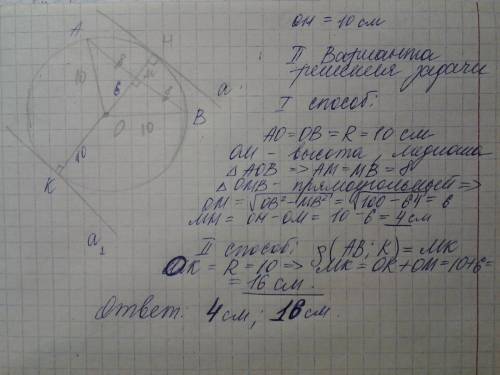 OH = 10 см
II Варианта
решения задачи
I способ:
AO = OB = R = 10 см
OM - высота, медиана
△ AOB => AM = MB = 8
△ OMB - прямоугольный =>
OM = √OB² - MB² = √100 - 64 = 6
MH = OH - OM = 10 - 6 = 4 см
II способ: ρ(AB; K) = MK
OK = R = 10 => MK = OK + OM = 10 + 6 =
= 16 см.
Ответ: 4 см; 16 см.
A
H
8
M
10
6
a
8
B
O
10
10
K
a₁